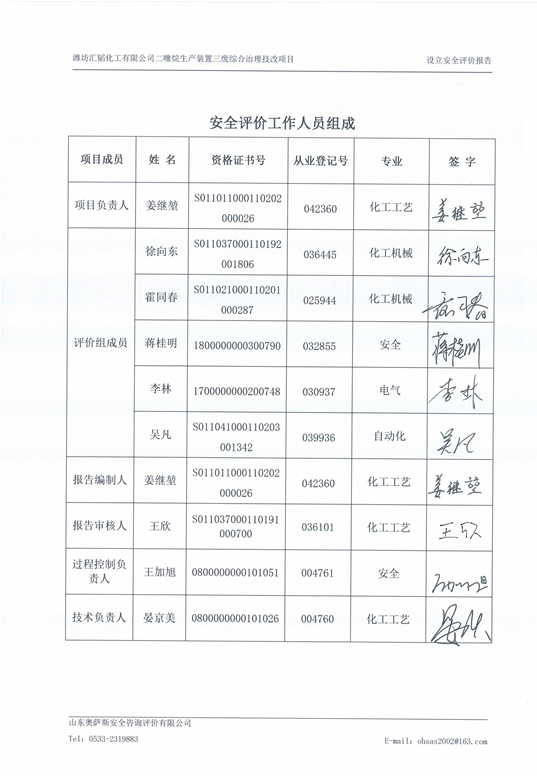 潍坊汇韬化工有限公司二噻烷生产装置三废综合治理技改项目 设立安全评价报告
安全评价工作人员组成
项目成员 姓 名 资格证书号 从业登记号 专业 签 字
项目负责人 姜继堃 S011011000110202000026 042360 化工工艺 姜继堃
评价组成员 徐向东 S011037000110192001806 036445 化工机械 徐向东
霍同春 S011021000110201000287 025944 化工机械
蒋桂明 1800000000300790 032855 安全 蒋桂明
李林 1700000000200748 030937 电气 李林
吴凡 S011041000110203001342 039936 自动化 吴凡
报告编制人 姜继堃 S011011000110202000026 042360 化工工艺 姜继堃
报告审核人 王欣 S011037000110191000700 036101 化工工艺 王欣
过程控制负责人 王加旭 0800000000101051 004761 安全
技术负责人 晏京美 0800000000101026 004760 化工工艺
山东奥萨斯安全咨询评价有限公司
Tel: 0533-2319883 E-mail: ohsas2002@163.com